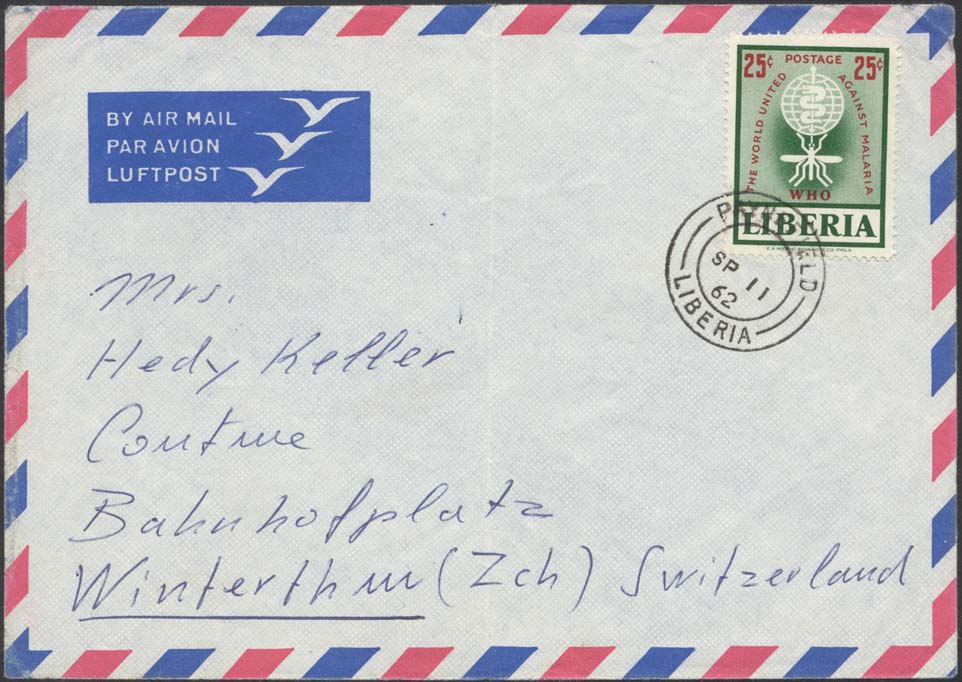 BY AIR MAIL
PAR AVION
LUFTPOST
25¢ POSTAGE 25¢
THE WORLD UNITED AGAINST MALARIA
WHO
LIBERIA
SP 11
62
LIBERIA
Mrs.
Hedy Keller
Couture
Bahnhofplatz
Winterthur (Zch) Switzerland